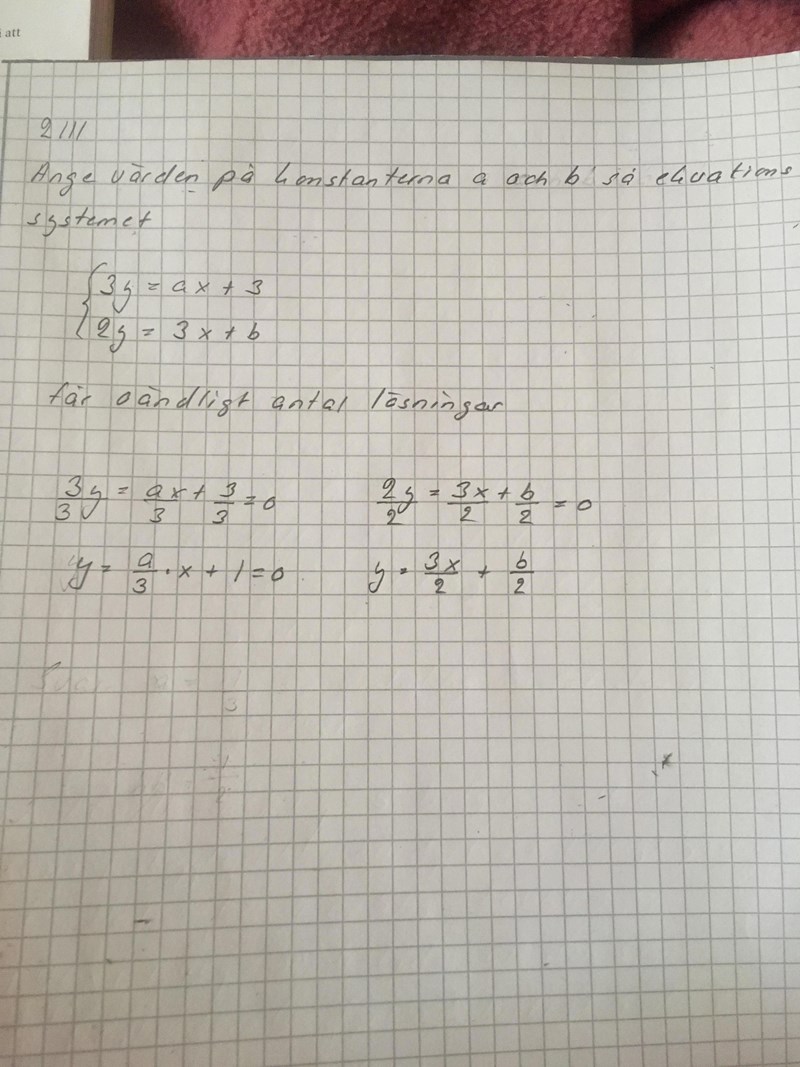 i att
2111
Ange värden på konstanterna a och b så ekvations
systemet
{3y = ax + 3
{2y = 3x + b
får oändligt antal lösningar
3/3 y = ax/3 + 3/3 = 0
2y/2 = 3x/2 + b/2 = 0
y = a/3 · x + 1 = 0
y = 3x/2 + b/2